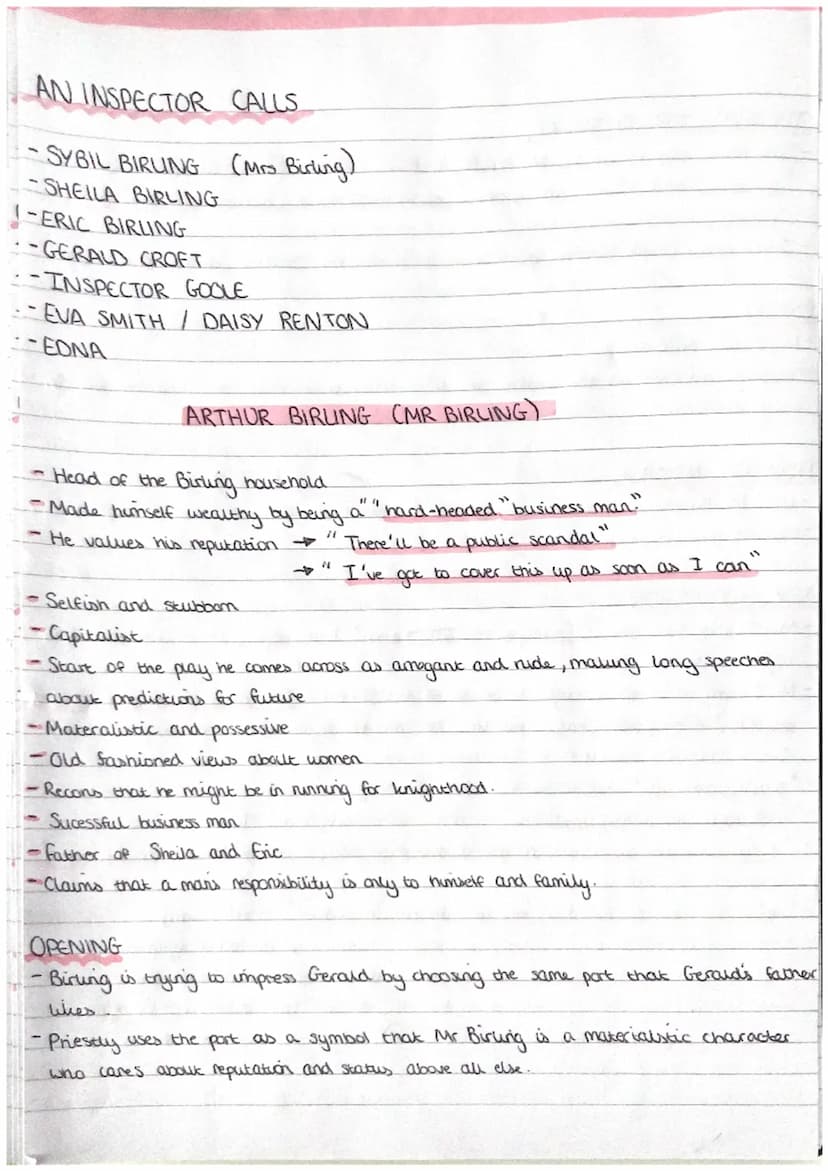 AN INSPECTOR CALLS
- SYBIL BIRLING (Mrs Birling)
- SHEILA BIRLING
- ERIC BIRLING
- GERALD CROFT
- INSPECTOR GOOLE
- EVA SMITH / DAISY RENTON
- EDNA
ARTHUR BIRLING (MR BIRLING)
- Head of the Birling household
- Made himself wealthy by being a" "hard-headed" business man."
- He values his reputation → "There'll be a public scandal"
→ "I've got to cover this up as soon as I can"
- Selfish and stubborn
- Capitalist
- Start of the play he comes across as arrogant and rude, making long speeches
about predictions for future
- Materalistic and possessive
- Old fashioned views about women
- Recons that he might be in running for knighthood.
- Sucessful business man
- Father of Sheila and Eric
- Claims that a mans responsibility is only to himself and family.
OPENING
- Birling is trying to impress Gerald by choosing the same port that Gerald's father
likes.
- Priestly uses the port as a symbol that Mr Birling is a materialistic character
who cares about reputation and status above all else.